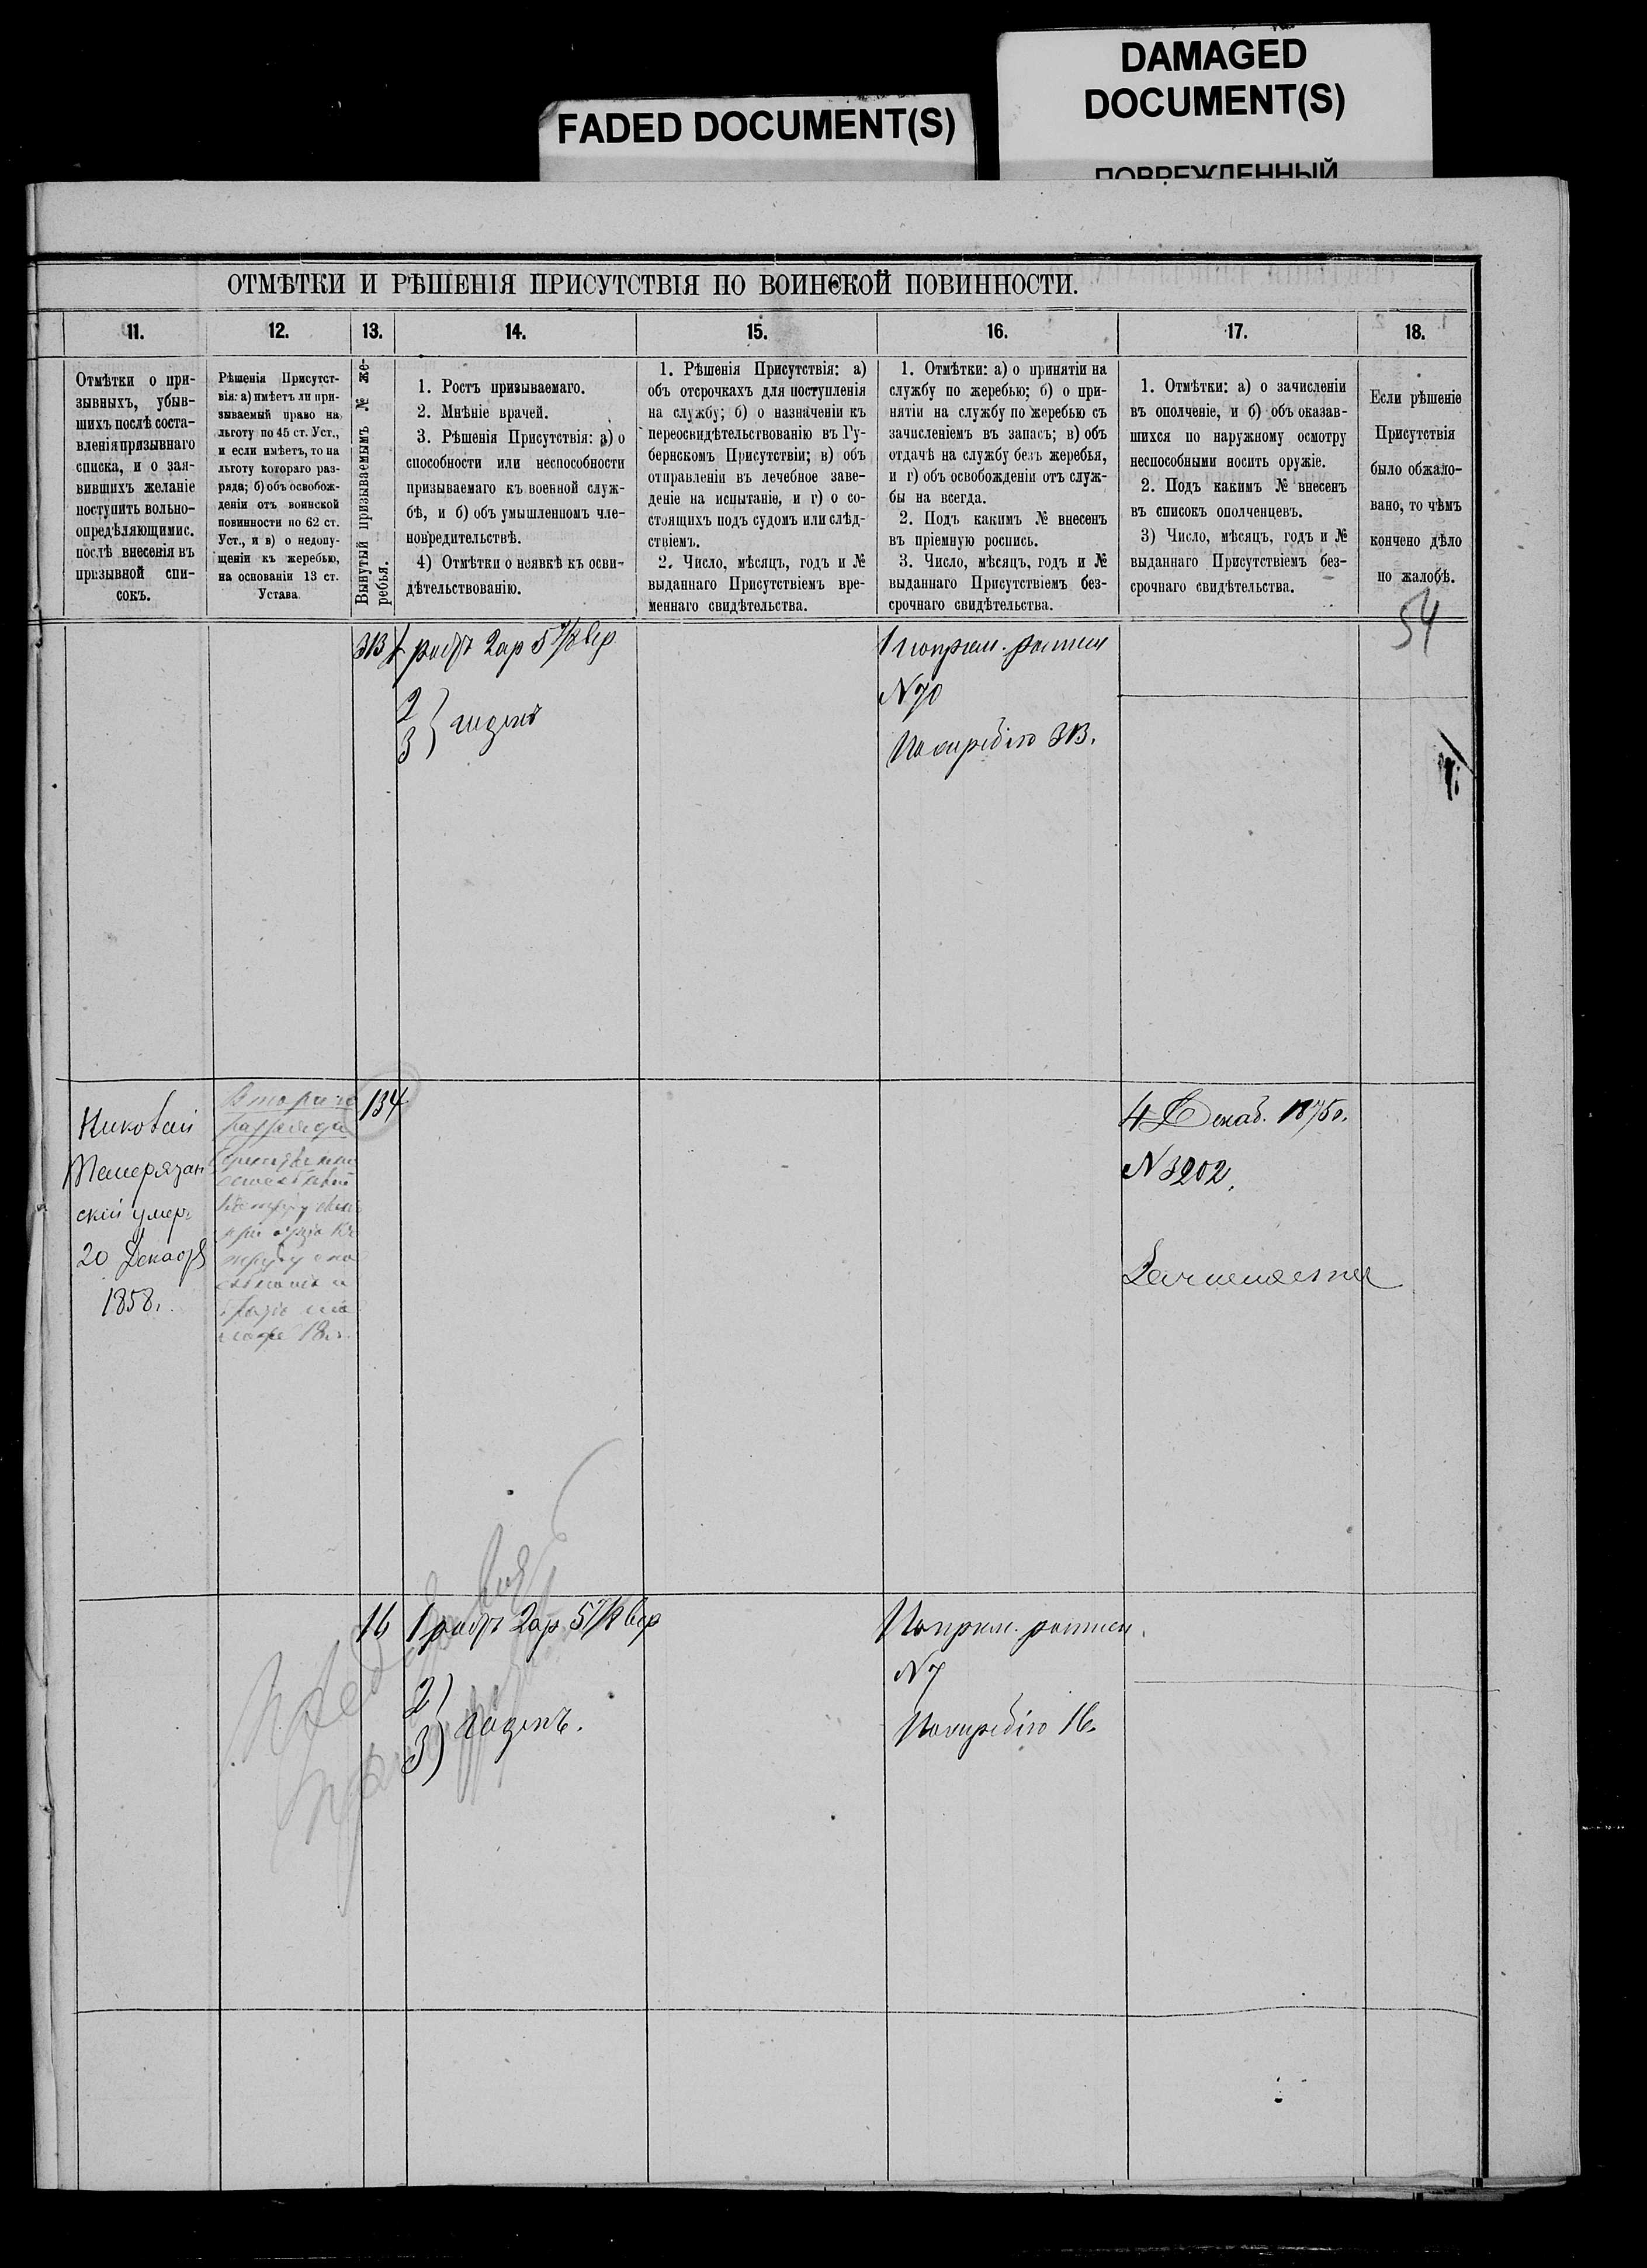 DAMAGED
DOCUMENT(S)
FADED DOCUMENT(S)
ПОВРЕЖДЕННЫЙ
ОТМѢТКИ И РѢШЕНІЯ ПРИСУТСТВІЯ ПО ВОИНСКОЙ ПОВИННОСТИ.
11.
Отмѣтки о при-
зывныхъ, убыв-
шихъ послѣ соста-
вленія призывнаго
списка, и о зая-
вившихъ желаніе
поступить вольно-
опредѣляющимис.
послѣ внесенія въ
призывной спи-
сокъ.
12.
Рѣшенія Присутст-
вія: а) имѣетъ ли при-
зываемый право на
льготу по 45 ст. Уст.,
и если имѣетъ, то на
льготу котораго раз-
ряда; б) объ освобож-
деніи отъ воинской
повинности по 62 ст.
Уст., и в) о недопу-
щеніи къ жеребью,
на основаніи 13 ст.
Устава
13.
Вынутый призываемымъ № же-
ребья.
14.
1. Ростъ призываемаго.
2. Мнѣніе врачей.
3. Рѣшенія Присутствія: а) о
способности или неспособности
призываемаго къ военной служ-
бѣ, и б) объ умышленномъ чле-
новредительствѣ.
4) Отмѣтки о неявкѣ къ осви-
дѣтельствованію.
15.
1. Рѣшенія Присутствія: а)
объ отсрочкахъ для поступленія
на службу; б) о назначеніи къ
переосвидѣтельствованію въ Гу-
бернскомъ Присутствіи; в) объ
отправленіи въ лечебное заве-
деніе на испытаніе, и г) о со-
стоящихъ подъ судомъ или слѣд-
ствіемъ.
2. Число, мѣсяцъ, годъ и №
выданнаго Присутствіемъ вре-
меннаго свидѣтельства.
16.
1. Отмѣтки: а) о принятіи на
службу по жеребью; б) о при-
нятіи на службу по жеребью съ
зачисленіемъ въ запасъ; в) объ
отдачѣ на службу безъ жеребья,
и г) объ освобожденіи отъ служ-
бы на всегда.
2. Подъ какимъ № внесенъ
въ пріемную роспись.
3. Число, мѣсяцъ, годъ и №
выданнаго Присутствіемъ без-
срочнаго свидѣтельства.
17.
1. Отмѣтки: а) о зачисленіи
въ ополченіе, и б) объ оказав-
шихся по наружному осмотру
неспособными носить оружіе.
2. Подъ какимъ № внесенъ
въ списокъ ополченцевъ.
3) Число, мѣсяцъ, годъ и №
выданнаго Присутствіемъ без-
срочнаго свидѣтельства.
18.
Если рѣшеніе
Присутствія
было обжало-
вано, то чѣмъ
кончено дѣло
по жалобѣ.
54
313
1 ростъ 2 ар 5 7/8 вер
2
3 } годенъ
По прием. росписи
N 70
По жеребію 313.
Николай
скій умеръ
20 Декабря
1858.
Втораго
разряда
134
4 Декаб. 1875 г.
N 3202.
16
1 ростъ 2 ар. 5 7/8 вер
2)
3) годенъ.
По прием. росписи
N 7
По жеребію 16.